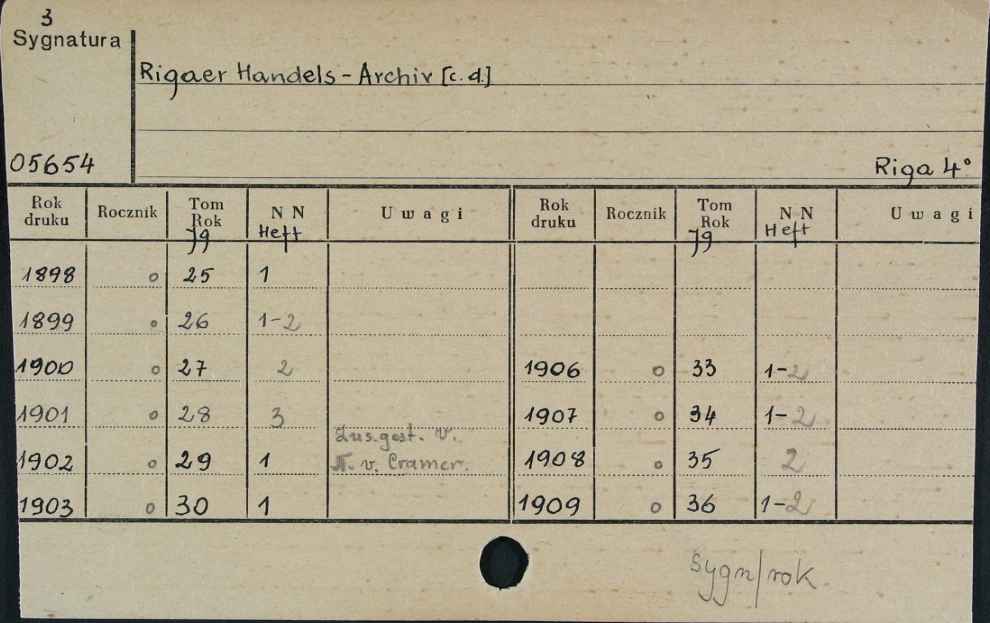 3
Sygnatura
Rigaer Handels-Archiv [c.d.]
05654
Riga 4°
Rok druku Rocznik Tom Rok Jg N N Heft Uwagi Rok druku Rocznik Tom Rok Jg N N Heft Uwagi
1898 o 25 1
1899 o 26 1-2
1900 o 27 2 1906 o 33 1-2
1901 o 28 3 1907 o 34 1-2
Zus.gest. v.
1902 o 29 1 v. Cramer. 1908 o 35 2
1903 o 30 1 1909 o 36 1-2
Sygn/rok.